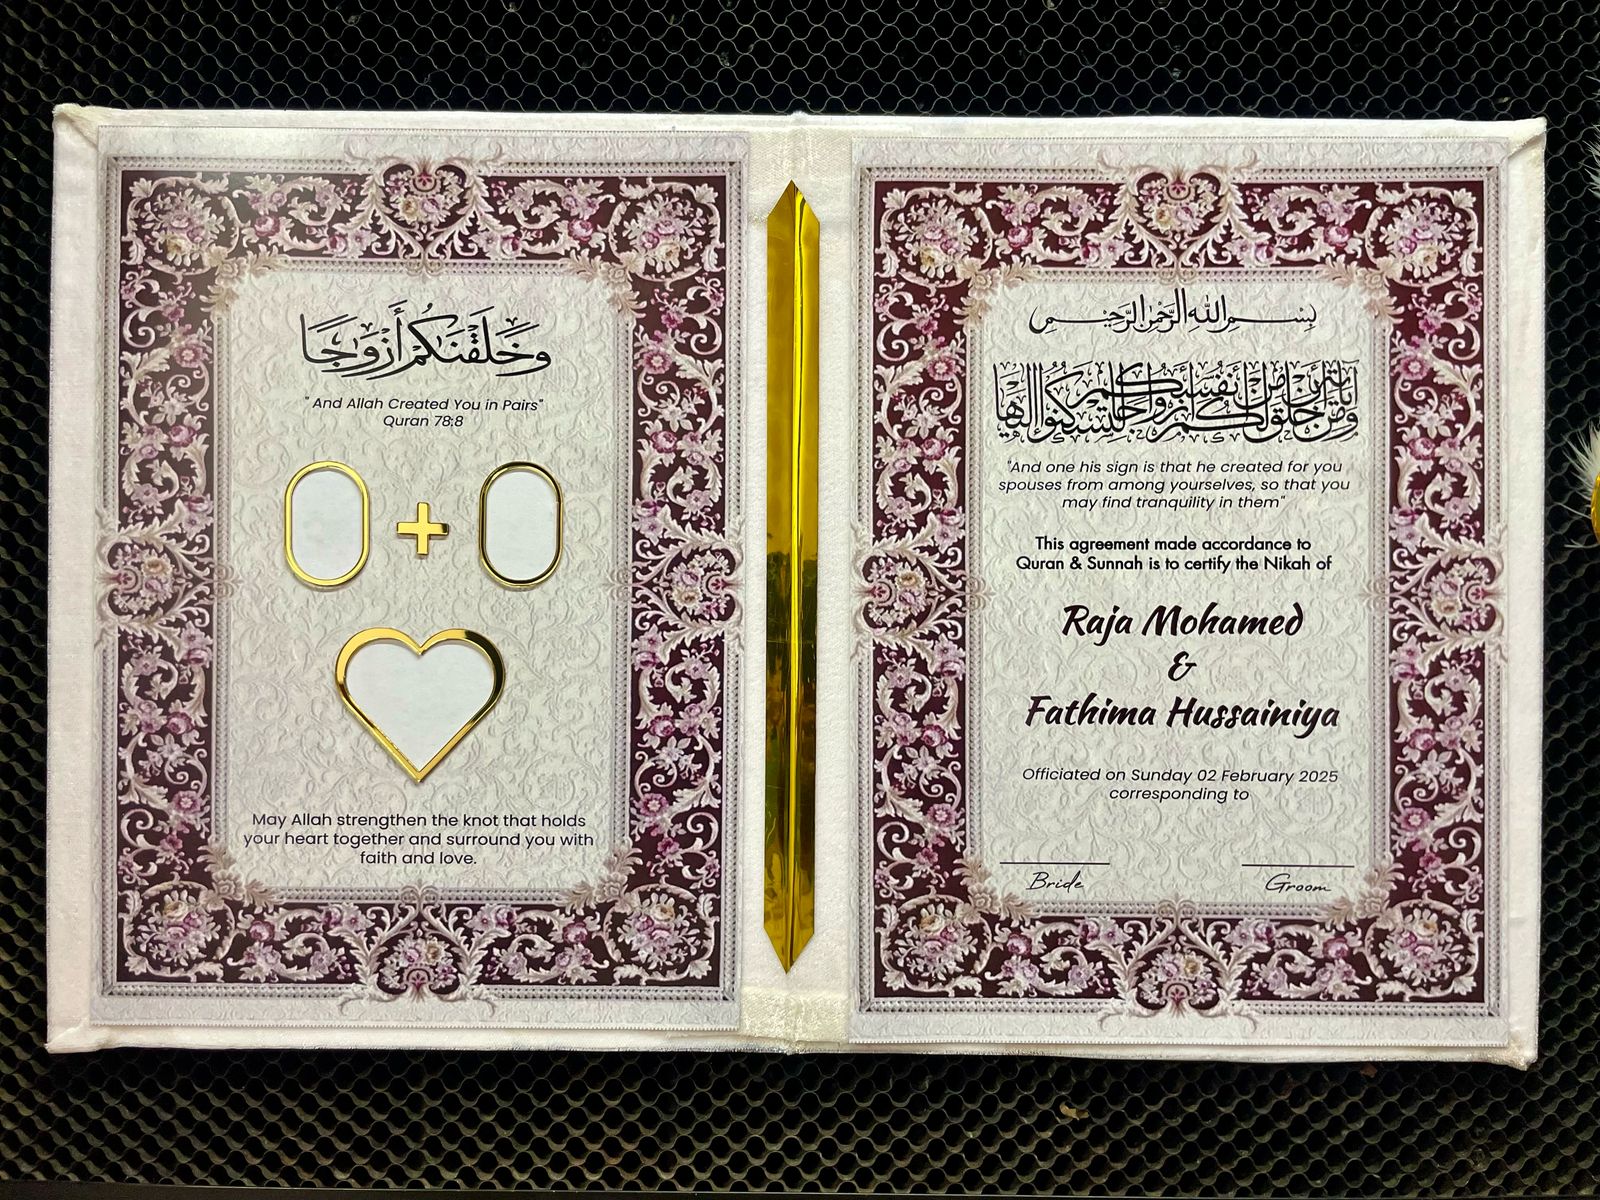 وَخَلَقْنَٰكُمْ أَزْوَٰجًا
" And Allah Created You in Pairs"
Quran 78:8
May Allah strengthen the knot that holds
your heart together and surround you with
faith and love.
بِسْمِ اللَّهِ الرَّحْمَٰنِ الرَّحِيمِ
ومن آياته أن خلق لكم من أنفسكم أزواجا لتسكنوا إليها
"And one his sign is that he created for you
spouses from among yourselves, so that you
may find tranquility in them"
This agreement made accordance to
Quran & Sunnah is to certify the Nikah of
Raja Mohamed
&
Fathima Hussainiya
Officiated on Sunday 02 February 2025
corresponding to
Bride
Groom